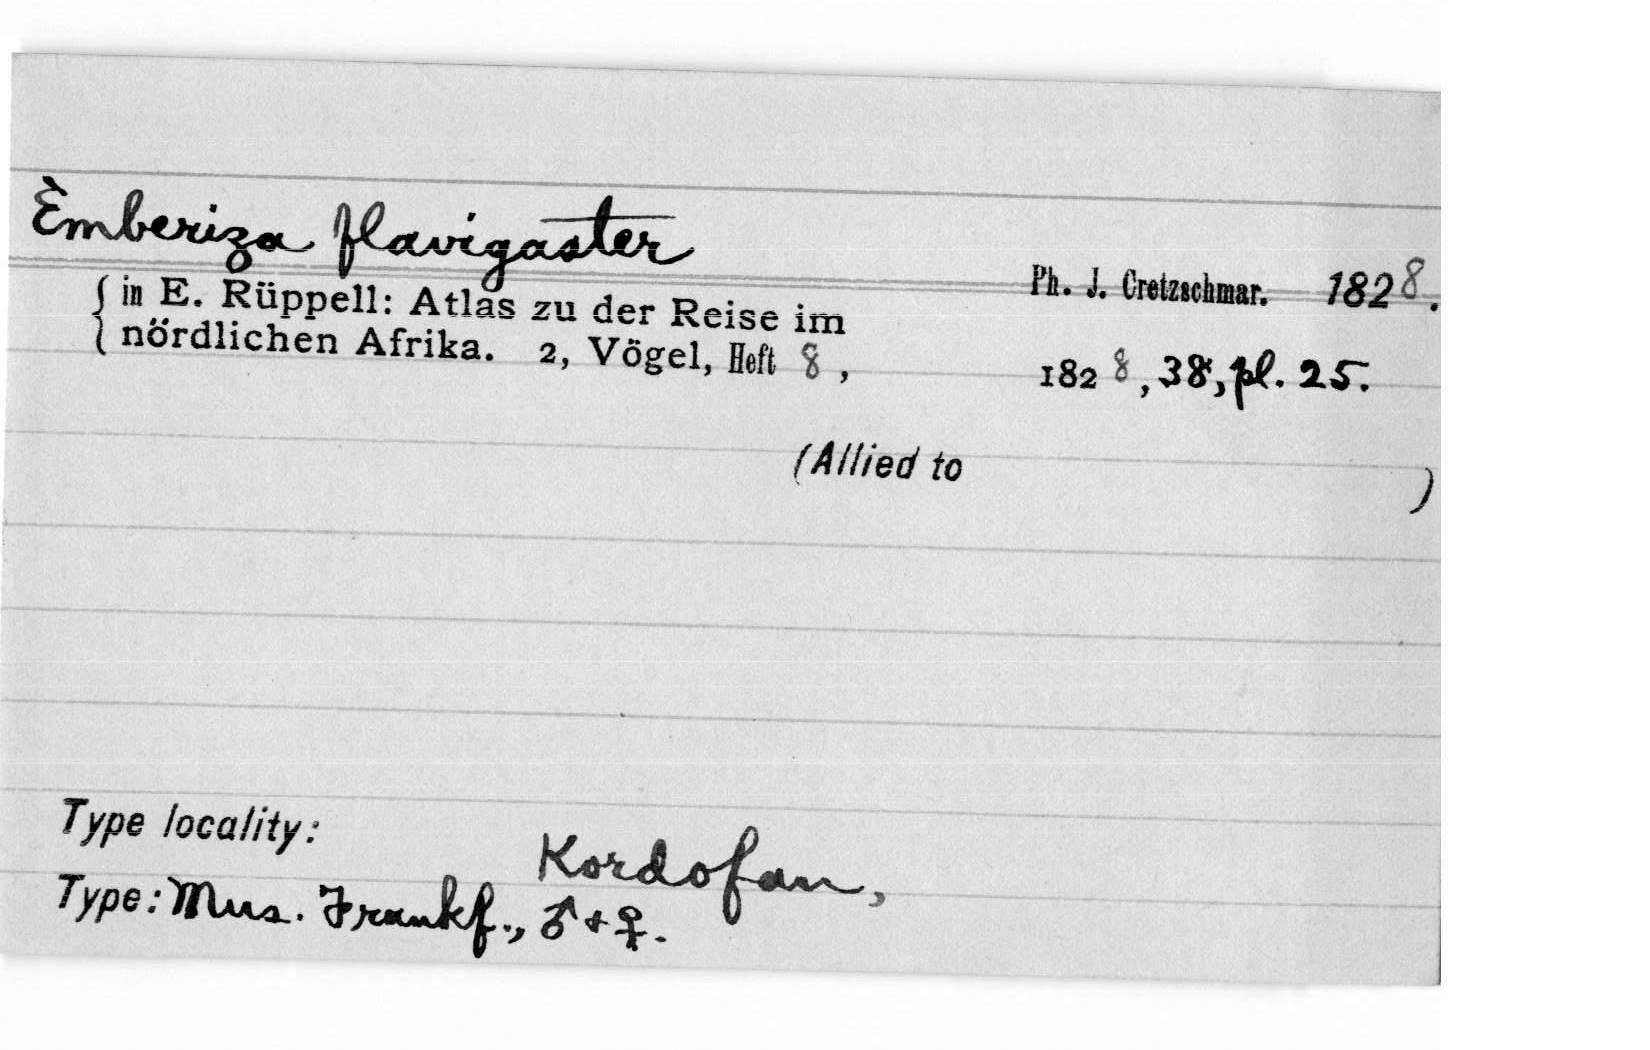 Emberiza flavigaster
Ph. J. Cretzschmar. 1828.
{ in E. Rüppell: Atlas zu der Reise im
nördlichen Afrika. 2, Vögel, Heft 8, 1828, 38, pl. 25.
(Allied to )
Type locality: Kordofan,
Type: Mus. Frankf., ♂ + ♀.